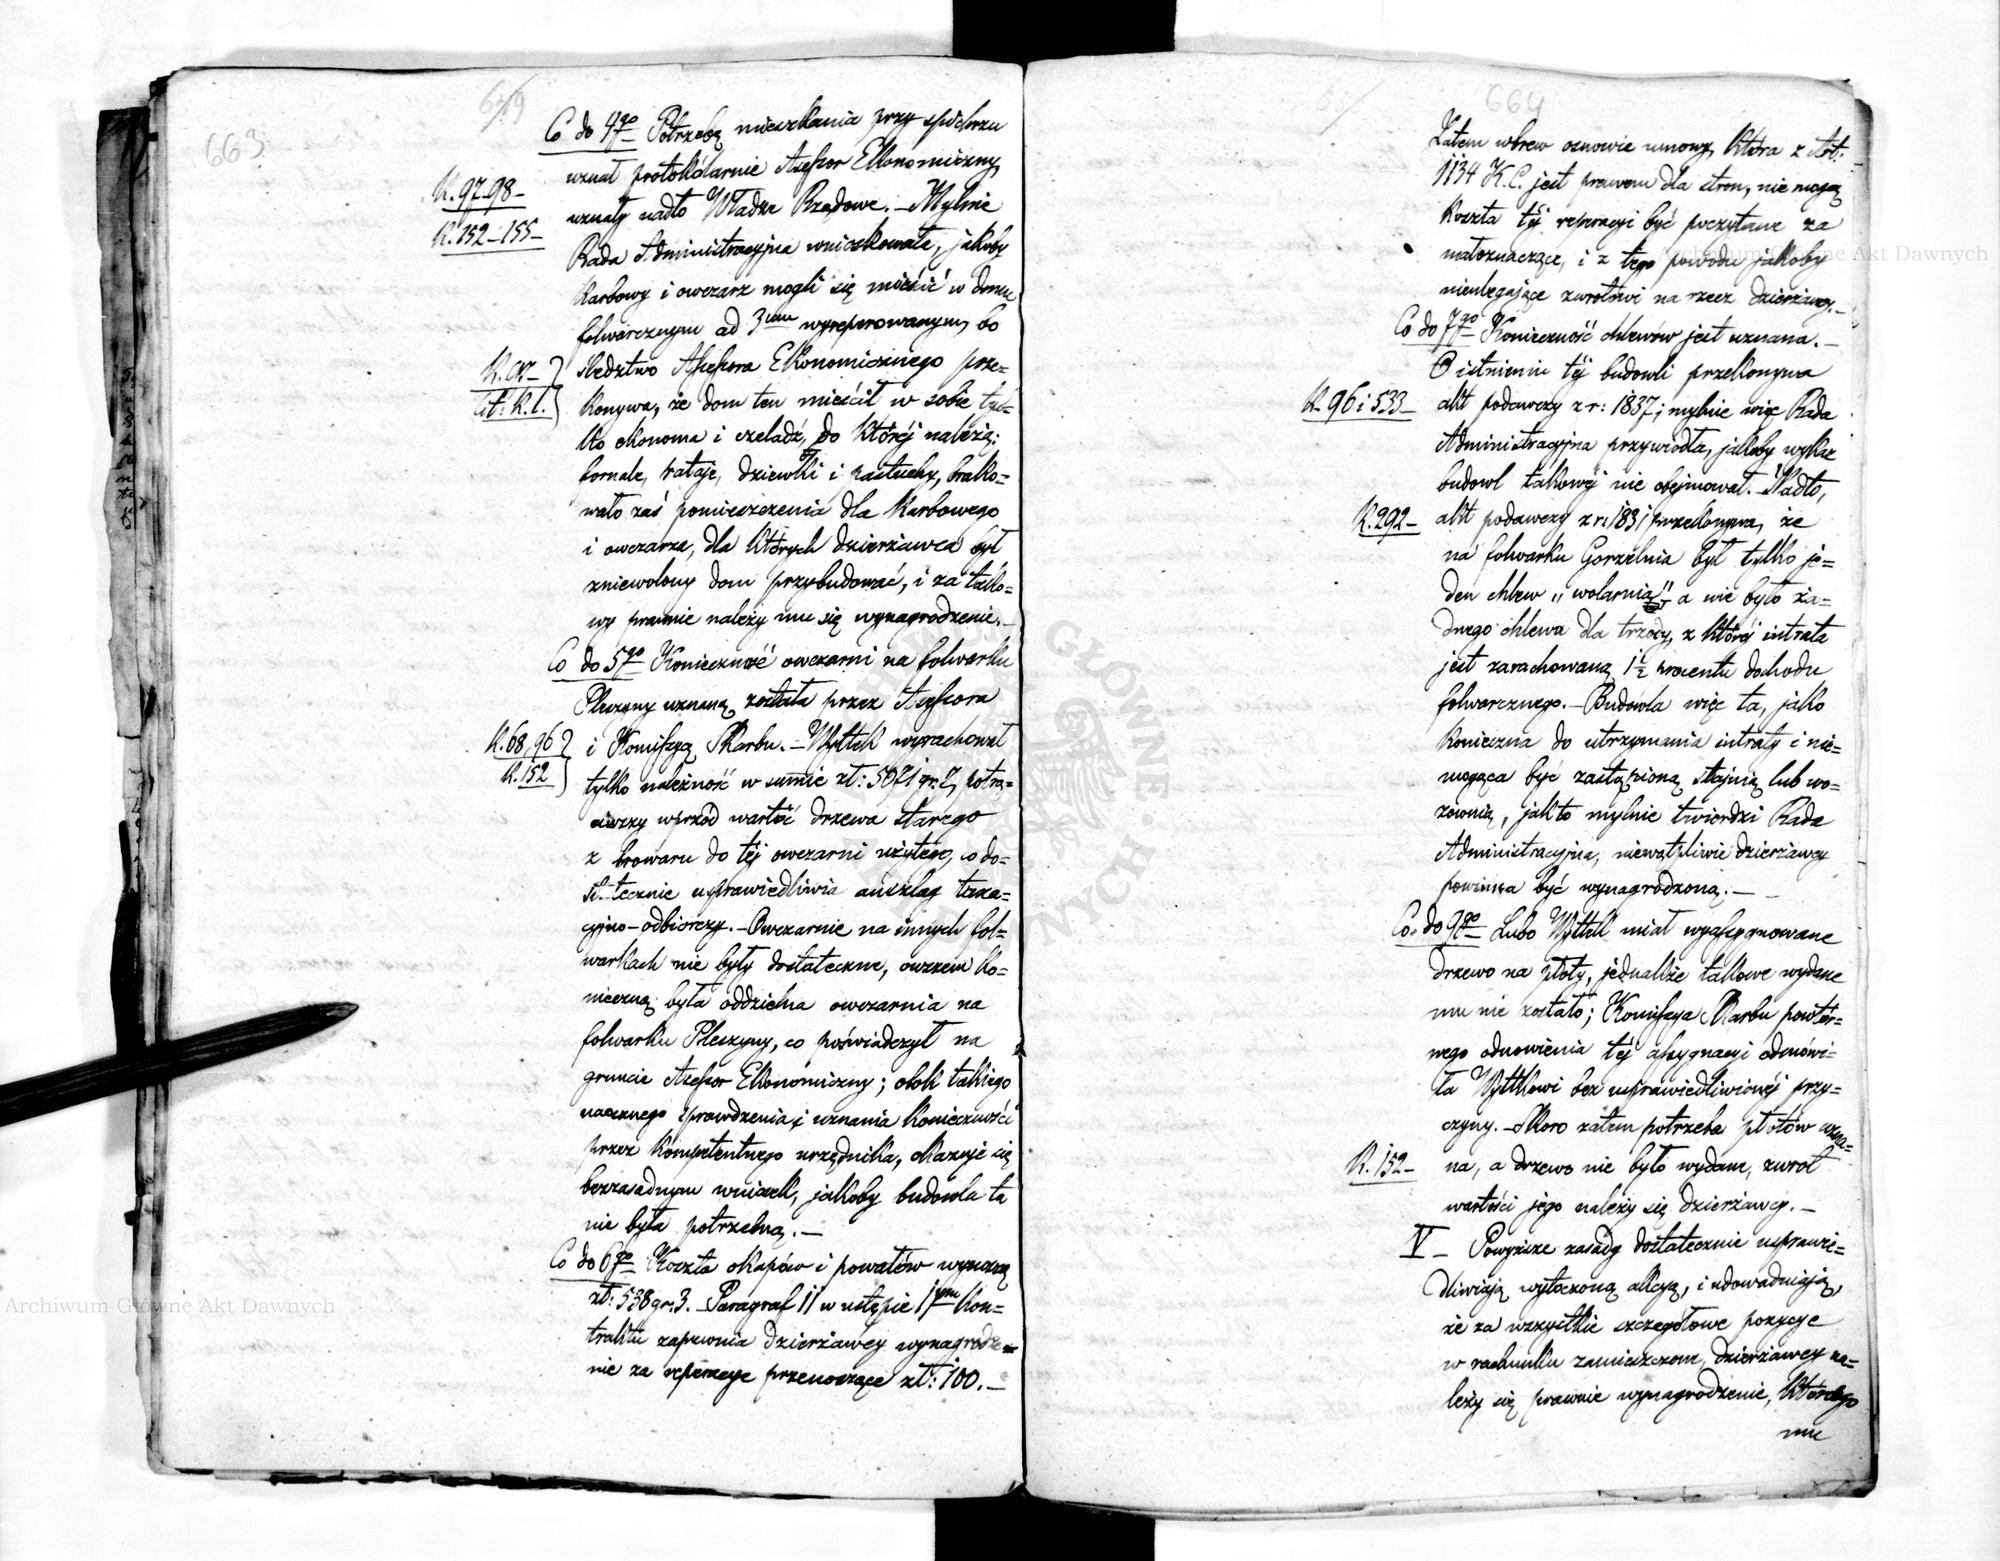 663
Co do 4go Potrzebę mieszkania przy spichrzu
uznał protokólarnie Assessor Ekonomiczny,
K. 97-98-
uznały nadto Władze Rządowe. – Mylnie
K. 152-155-
Rada Administracyjna wnioskowała, jakoby
Karbowy i owczarz mogli się mieścić w domu
folwarcznym ad 3cium wyreperowanym, bo
śledztwo Assessora Ekonomicznego prze=
lit: K. l.
konywa, że dom ten mieścił w sobie tyl=
ko ekonoma i czeladź, do któréj należą:
fornale, rataje, dziewki i pastuchy, brako=
wało zaś pomieszczenia dla Karbowego
i owczarza, dla których dzierżawca był
zniewolony dom przybudować, i za tako=
wy prawnie należy mu się wynagrodzenie. –
Co do 5go Konieczność owczarni na folwarku
Pleszyny uznaną została przez Assessora
K. 68, 96
i Kommissyą Skarbu. – Wyttek wyrachował
K. 152
tylko należność w summie zł: 5071 gr. 7, potrą=
ciwszy wprzód wartość drzewa starego
z browaru do téj owczarni użytego, co do=
statecznie usprawiedliwia anszlag taxa=
cyjno-odbiorczy. – Owczarnie na innych fol=
warkach nie były dostateczne, owszem ko=
nieczną była oddzielna owczarnia na
folwarku Pleszyny, co poświadczył na
gruncie Assessor Ekonomiczny; obok takiego
naocznego sprawdzenia i uznania konieczności
przez kompetentnego urzędnika, okazuje się
bezzasadnym wniosek, jakoby budowla ta
nie była potrzebną. –
Co do 6go Koszta okapów i powałów wynoszą
zł: 538 gr: 3. – Paragraf 11 w ustępie 1ym Kon=
traktu zapewnia dzierżawcy wynagrodze=
nie za reperacye przenoszące zł: 100. –
664
Zatem wbrew osnowie umowy, która z Art:
1134 K. C. jest prawem dla stron, nie mogą
koszta téj reperacyi być poczytane za
małoznaczące, i z tego powodu jakoby
nieulegające zwrotowi na rzecz dzierżawcy. –
Co do 7go Konieczność chlewów jest uznana. –
O istnieniu téj budowli przekonywa
K. 96 i 533-
akt podawczy z r: 1837; mylnie więc Rada
Administracyjna przywiodła, jakoby wykaz
budowl takowéj nie obejmował. – Nadto,
K. 292-
akt podawczy z r: 1831 przekonywa, że
na folwarku Gorzelnia był tylko je=
den chlew „wolarnią” a nie było ża=
dnego chlewa dla trzody, z któréj intrata
jest zarachowaną 1½ procentu dochodu
folwarcznego. – Budowla więc ta, jako
konieczna do utrzymania intraty i nie=
mogąca być zastąpioną stajnią lub wo=
zownią, jak to mylnie twierdzi Rada
Administracyjna, niewątpliwie dzierżawcy
powinna być wynagrodzoną. –
Co do 9go Lubo Wyttek miał wyassygnowane
drzewo na płoty, jednakże takowe wydane
mu nie zostało; Kommissya Skarbu powtór=
nego odnowienia téj assygnacyi odmówi=
ła Wyttkowi bez usprawiedliwionéj przy=
czyny. – Skoro zatem potrzeba płotów uzna=
K. 152-
na, a drzewo nie było wydane, zwrot
wartości jego należy się dzierżawcy. –
V – Powyższe zasady dostatecznie usprawie=
dliwiają wytoczoną akcyą, i udowadniają,
że za wszystkie szczegółowe pozycye
w rachunku zamieszczone, dzierżawcy na=
leży się prawnie wynagrodzenie, którego
mu
Archiwum Główne Akt Dawnych
Archiwum Główne Akt Dawnych